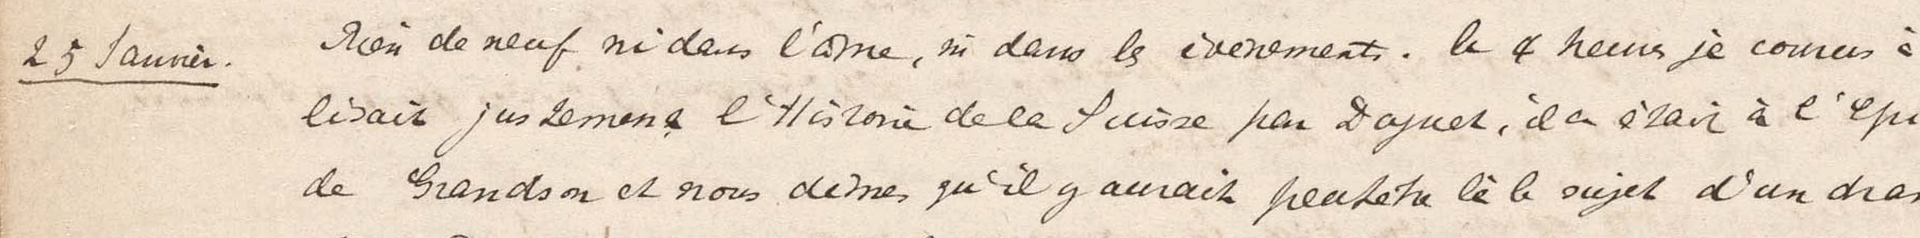 25 Janvier. Rien de neuf ni dans l'âme, ni dans les évènements. à 4 heures je courus à
lisait justement l'Histoire de la Suisse par Daguet, il en était à l'Epi
de Grandson et nous dîmes qu'il y aurait peutêtre là le sujet d'un dra